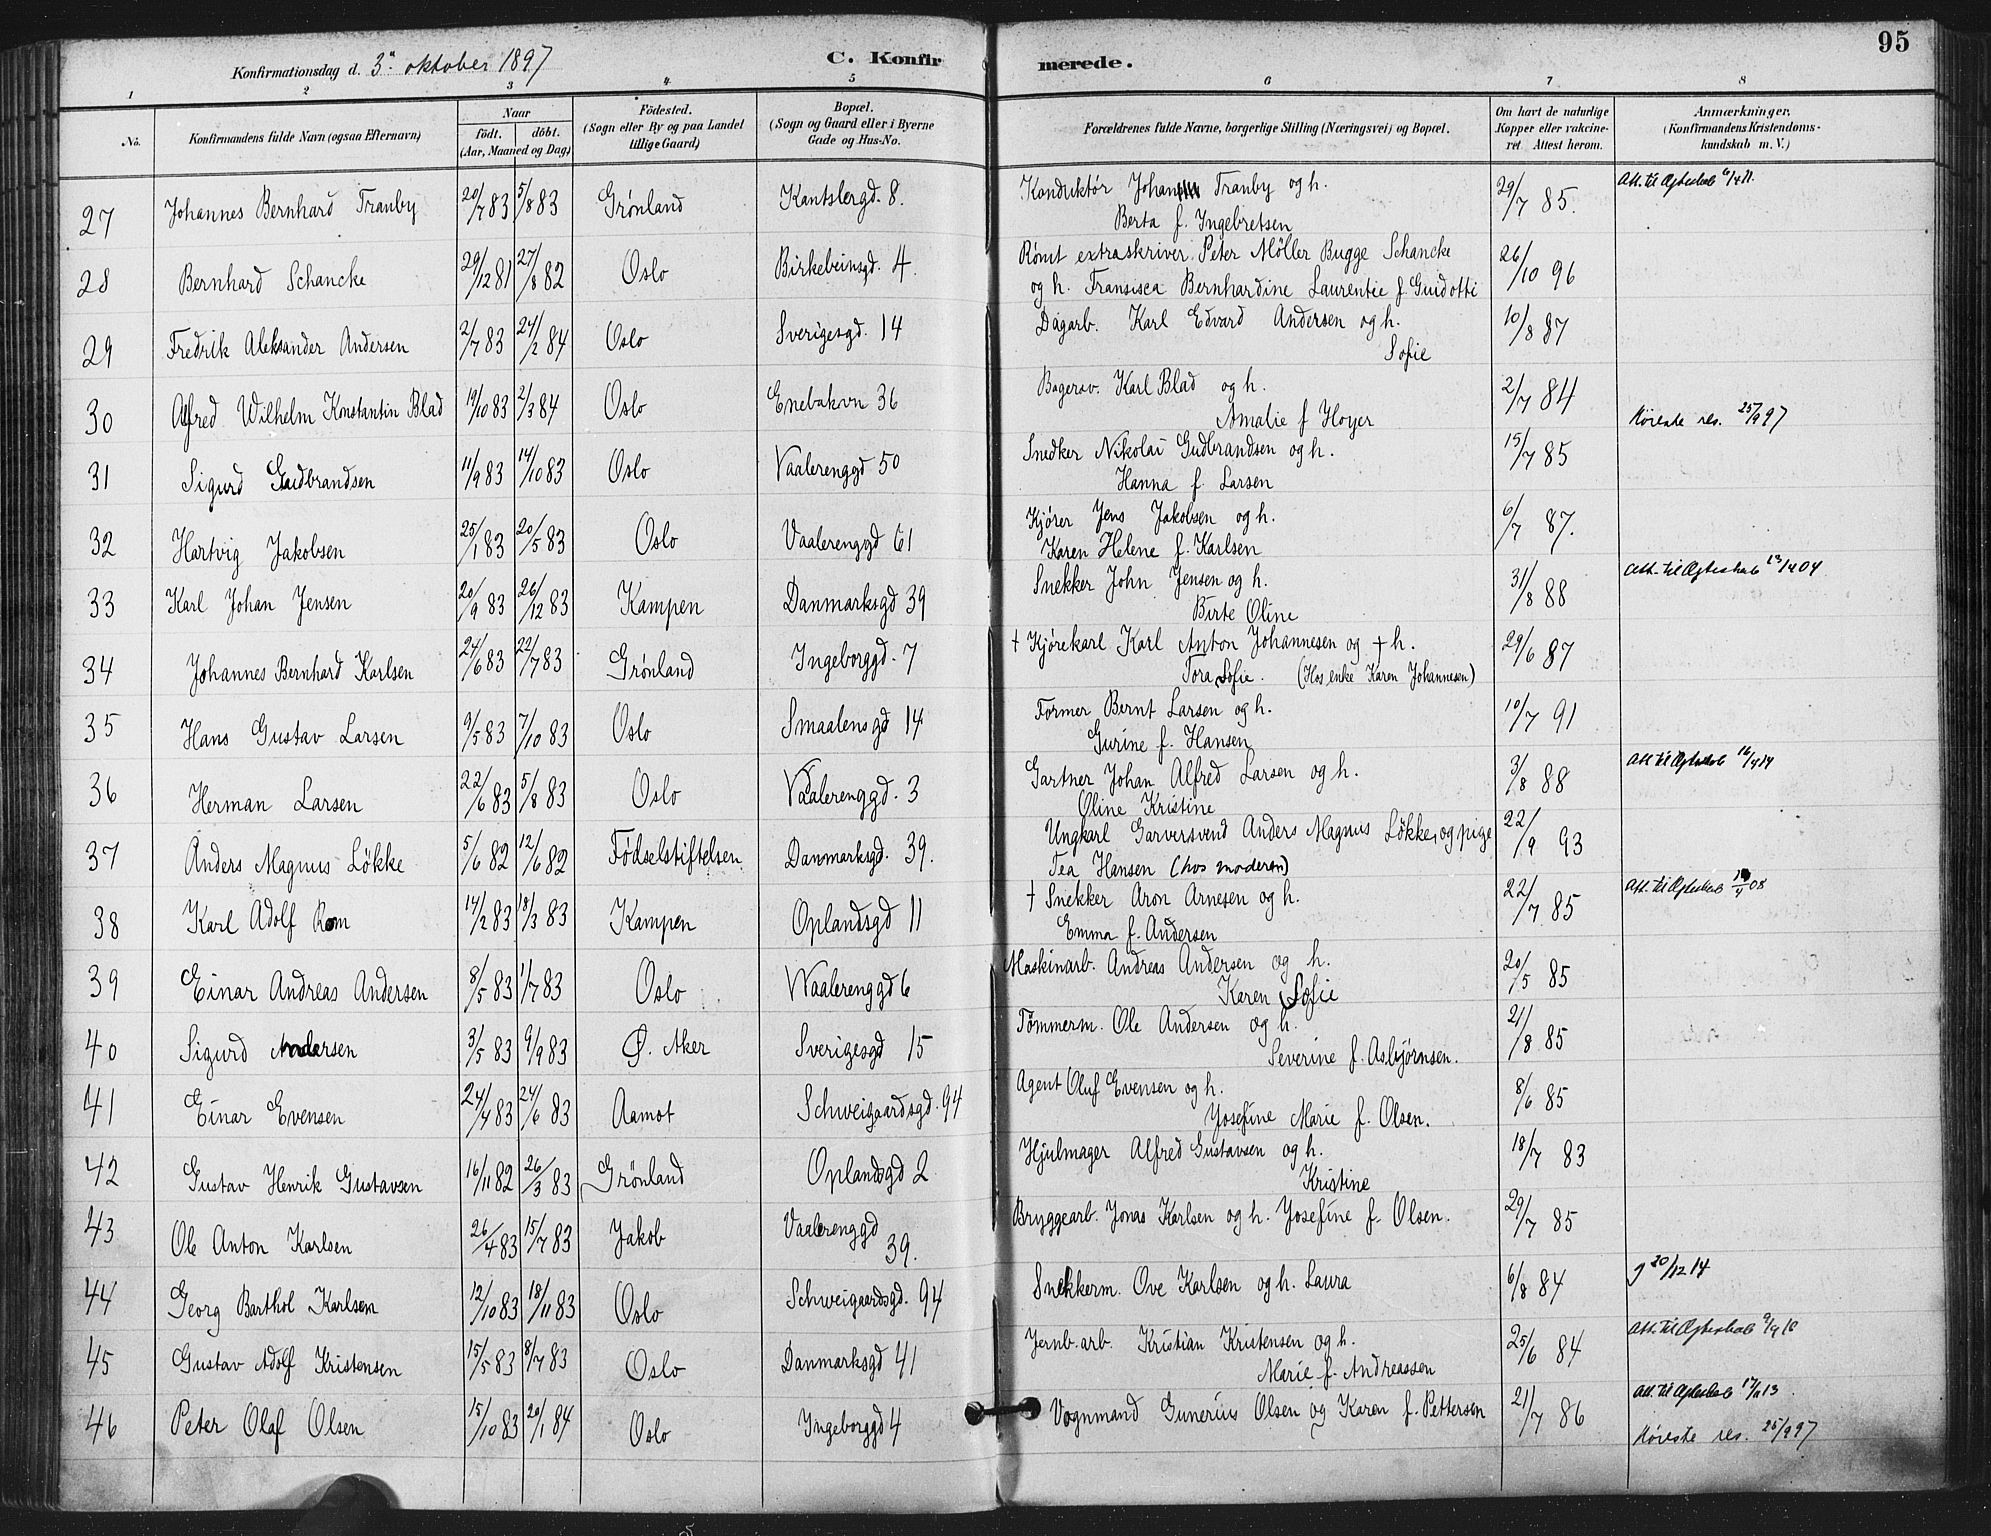 95
Konfirmationsdag d. 3die oktober 1897 C. Konfirmerede.
1 2 3 4 5 6 7 8
No. Konfirmandens fulde Navn (ogsaa Efternavn) Naar födt. döbt. (Aar, Maaned og Dag) Födested. (Sogn eller By og paa Landet tillige Gaard) Bopæl. (Sogn og Gaard eller i Byerne Gade og Hus-No. Forældrenes fulde Navne, borgerlige Stilling (Næringsvei) og Bopæl. Om havt de naturlige Kopper eller vakcineret. Attest herom. Anmærkninger. (Konfirmandens Kristendomskundskab m. V.)
27 Johannes Bernhard Tranby 20/7 83 5/8 83 Grønland Kantslergd. 8. Konduktør Johan Tranby og h. 29/7 85. Att. til Ægteskab 6/4 11.
Berta f. Ingebretsen
28 Bernhard Schancke 29/12 81 27/8 82 Oslo Birkebeinsgd. 4. Rømt extraskriver Peter Møller Bugge Schancke 26/10 96
og h. Fransisca Bernhardine Laurentie f. Guidotti
29 Fredrik Aleksander Andersen 2/7 83 24/2 84 Oslo Sverigesgd. 14 Dagarb. Karl Edvard Andersen og h. 10/8 87
Sofie
30 Alfred Wilhelm Konstantin Blad 19/10 83 2/3 84 Oslo Enebakvn 36 Bagersv. Karl Blad og h. 2/7 84
Amalie f Hoyer Høieste res. 25/9 97
31 Sigurd Gudbrandsen 11/9 83 14/10 83 Oslo Vaalerenggd 50 Snedker Nikolai Gudbrandsen og h. 15/7 85
Hanna f. Larsen
32 Hartvig Jakobsen 25/1 83 20/5 83 Oslo Vaalerenggd 61 Kjører Jens Jakobsen og h. 6/7 87.
Karen Helene f. Karlsen
33 Karl Johan Jensen 20/9 83 26/12 83 Kampen Danmarksgd 39 Snekker John Jensen og h. 31/8 88 Att. til Ægteskab 13/4 04
Birte Oline
34 Johannes Bernhard Karlsen 24/6 83 22/7 83 Grønland Ingeborggd. 7 † Kjørekarl Karl Anton Johannesen og † h. 29/6 87
Tora Sofie. (Hos enke Karen Johannesen)
35 Hans Gustav Larsen 9/5 83 7/10 83 Oslo Smaalensgd 14 Former Bernt Larsen og h. 10/7 91
Gurine f. Hansen
36 Herman Larsen 22/6 83 5/8 83 Oslo Vaalerenggd. 3 Gartner Johan Alfred Larsen og h. 3/8 88 Att til Ægteskab 16/4 14
Oline Kristine
37 Anders Magnus Løkke 5/6 82 12/6 82 Fødselstiftelsen Danmarksgd. 39. Ungkarl Garversvend Anders Magnus Løkke, og pige 22/9 93
Tea Hansen (hos moderen)
38 Karl Adolf Rom 14/2 83 18/3 83 Kampen Oplandsgd 11 † Snekker Aron Arnesen og h. 22/7 85 Att. til Ægteskab 08
Emma f. Andersen
39 Einar Andreas Andersen 8/5 83 1/7 83 Oslo Vaalerenggd 6 Maskinarb. Andreas Andersen og h. 20/5 85
Karen Sofie
40 Sigurd Andersen 3/5 83 9/9 83 Ø. Aker Sverigesgd 15 Tømmerm. Ole Andersen og h. 21/8 85
Severine f. Asbjørnsen.
41 Einar Evensen 24/4 83 24/6 83 Aamot Schweigaardsgd. 94 Agent Oluf Evensen og h. 8/6 85
Josefine Marie f. Olsen.
42 Gustav Henrik Gustavsen 16/11 82 26/3 83 Grønland Oplandsgd 2 Hjulmager Alfred Gustavsen og h. 18/7 83
Kristine
43 Ole Anton Karlsen 26/4 83 15/7 83 Jakob Vaalerenggd 39. Bryggearb. Jonas Karlsen og h. Josefine f. Olsen. 29/7 85
44 Georg Barthol Karlsen 12/10 83 18/11 83 Oslo Schweigaardsgd. 94 Snekkerm. Ove Karlsen og h. Laura 6/8 84 30/12 14
45 Gustav Adolf Kristensen 15/5 83 8/7 83 Oslo Danmarksgd 41 Jernb. arb. Kristian Kristensen og h. 25/6 84 Att. til Ægteskab
Marie f. Andreassen
46 Peter Olaf Olsen 15/10 83 20/1 84 Oslo Ingeborggd 4 Vognmand Gunerius Olsen og Karen f. Pettersen 21/7 86 Att. til Ægteskab 13
Høieste res. 25/9 97